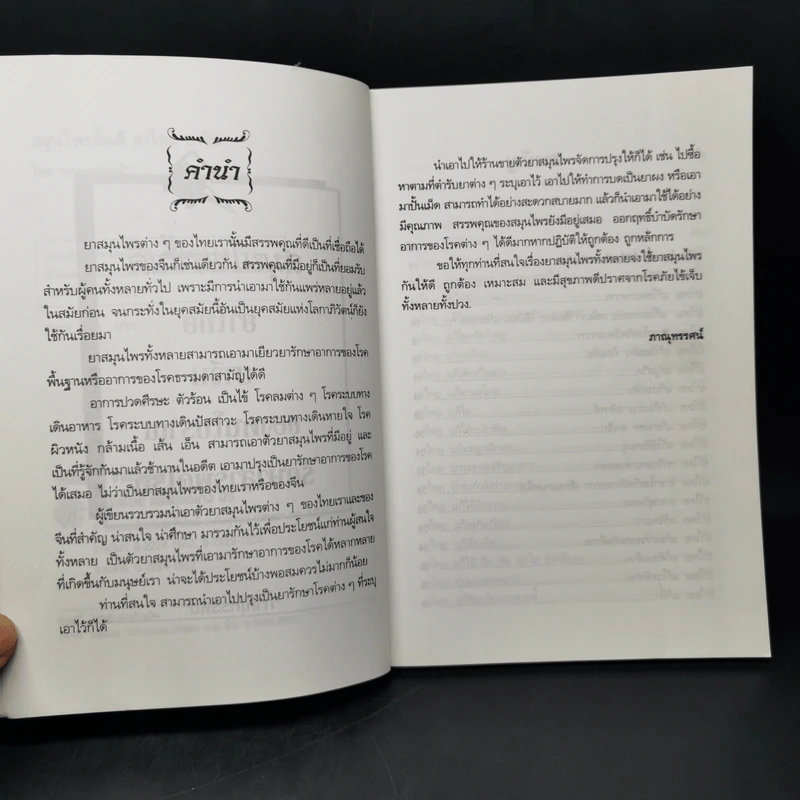 คำนำ
ยาสมุนไพรต่าง ๆ ของไทยเรานั้นมีสรรพคุณที่ดีเป็นที่เชื่อถือได้
ยาสมุนไพรของจีนก็เช่นเดียวกัน สรรพคุณที่มีอยู่ก็เป็นที่ยอมรับ
สำหรับผู้คนทั้งหลายทั่วไป เพราะมีการนำเอามาใช้กันแพร่หลายอยู่แล้ว
ในสมัยก่อน จนกระทั่งในยุคสมัยนี้อันเป็นยุคสมัยแห่งโลกาภิวัตน์ก็ยัง
ใช้กันเรื่อยมา
ยาสมุนไพรทั้งหลายสามารถเอามาเยียวยารักษาอาการของโรค
พื้นฐานหรืออาการของโรคธรรมดาสามัญได้ดี
อาการปวดศีรษะ ตัวร้อน เป็นไข้ โรคลมต่าง ๆ โรคระบบทาง
เดินอาหาร โรคระบบทางเดินปัสสาวะ โรคระบบทางเดินหายใจ โรค
ผิวหนัง กล้ามเนื้อ เส้น เอ็น สามารถเอาตัวยาสมุนไพรที่มีอยู่ และ
เป็นที่รู้จักกันมาแล้วช้านานในอดีต เอามาปรุงเป็นยารักษาอาการของโรค
ได้เสมอ ไม่ว่าเป็นยาสมุนไพรของไทยเราหรือของจีน
ผู้เขียนรวบรวมนำเอาตัวยาสมุนไพรต่าง ๆ ของไทยเราและของ
จีนที่สำคัญ น่าสนใจ น่าศึกษา มารวมกันไว้เพื่อประโยชน์แก่ท่านผู้สนใจ
ทั้งหลาย เป็นตัวยาสมุนไพรที่เอามารักษาอาการของโรคได้หลากหลาย
ที่เกิดขึ้นกับมนุษย์เรา น่าจะได้ประโยชน์บ้างพอสมควรไม่มากก็น้อย
ท่านที่สนใจ สามารถนำเอาไปปรุงเป็นยารักษาโรคต่าง ๆ ที่ระบุ
เอาไว้ก็ได้
นำเอาไปให้ร้านขายตัวยาสมุนไพรจัดการปรุงให้ก็ได้ เช่น ไปซื้อ
หาตามที่ตำรับยาต่าง ๆ ระบุเอาไว้ เอาไปให้ทำการบดเป็นยาผง หรือเอา
มาปั้นเม็ด สามารถทำได้อย่างสะดวกสบายมาก แล้วก็นำเอามาใช้ได้อย่าง
มีคุณภาพ สรรพคุณของสมุนไพรยังมีอยู่เสมอ ออกฤทธิ์บำบัดรักษา
อาการของโรคต่าง ๆ ได้ดีมากหากปฏิบัติให้ถูกต้อง ถูกหลักการ
ขอให้ทุกท่านที่สนใจเรื่องยาสมุนไพรทั้งหลายจงใช้ยาสมุนไพร
กันให้ดี ถูกต้อง เหมาะสม และมีสุขภาพดีปราศจากโรคภัยไข้เจ็บ
ทั้งหลายทั้งปวง.
ภาณุทรรศน์